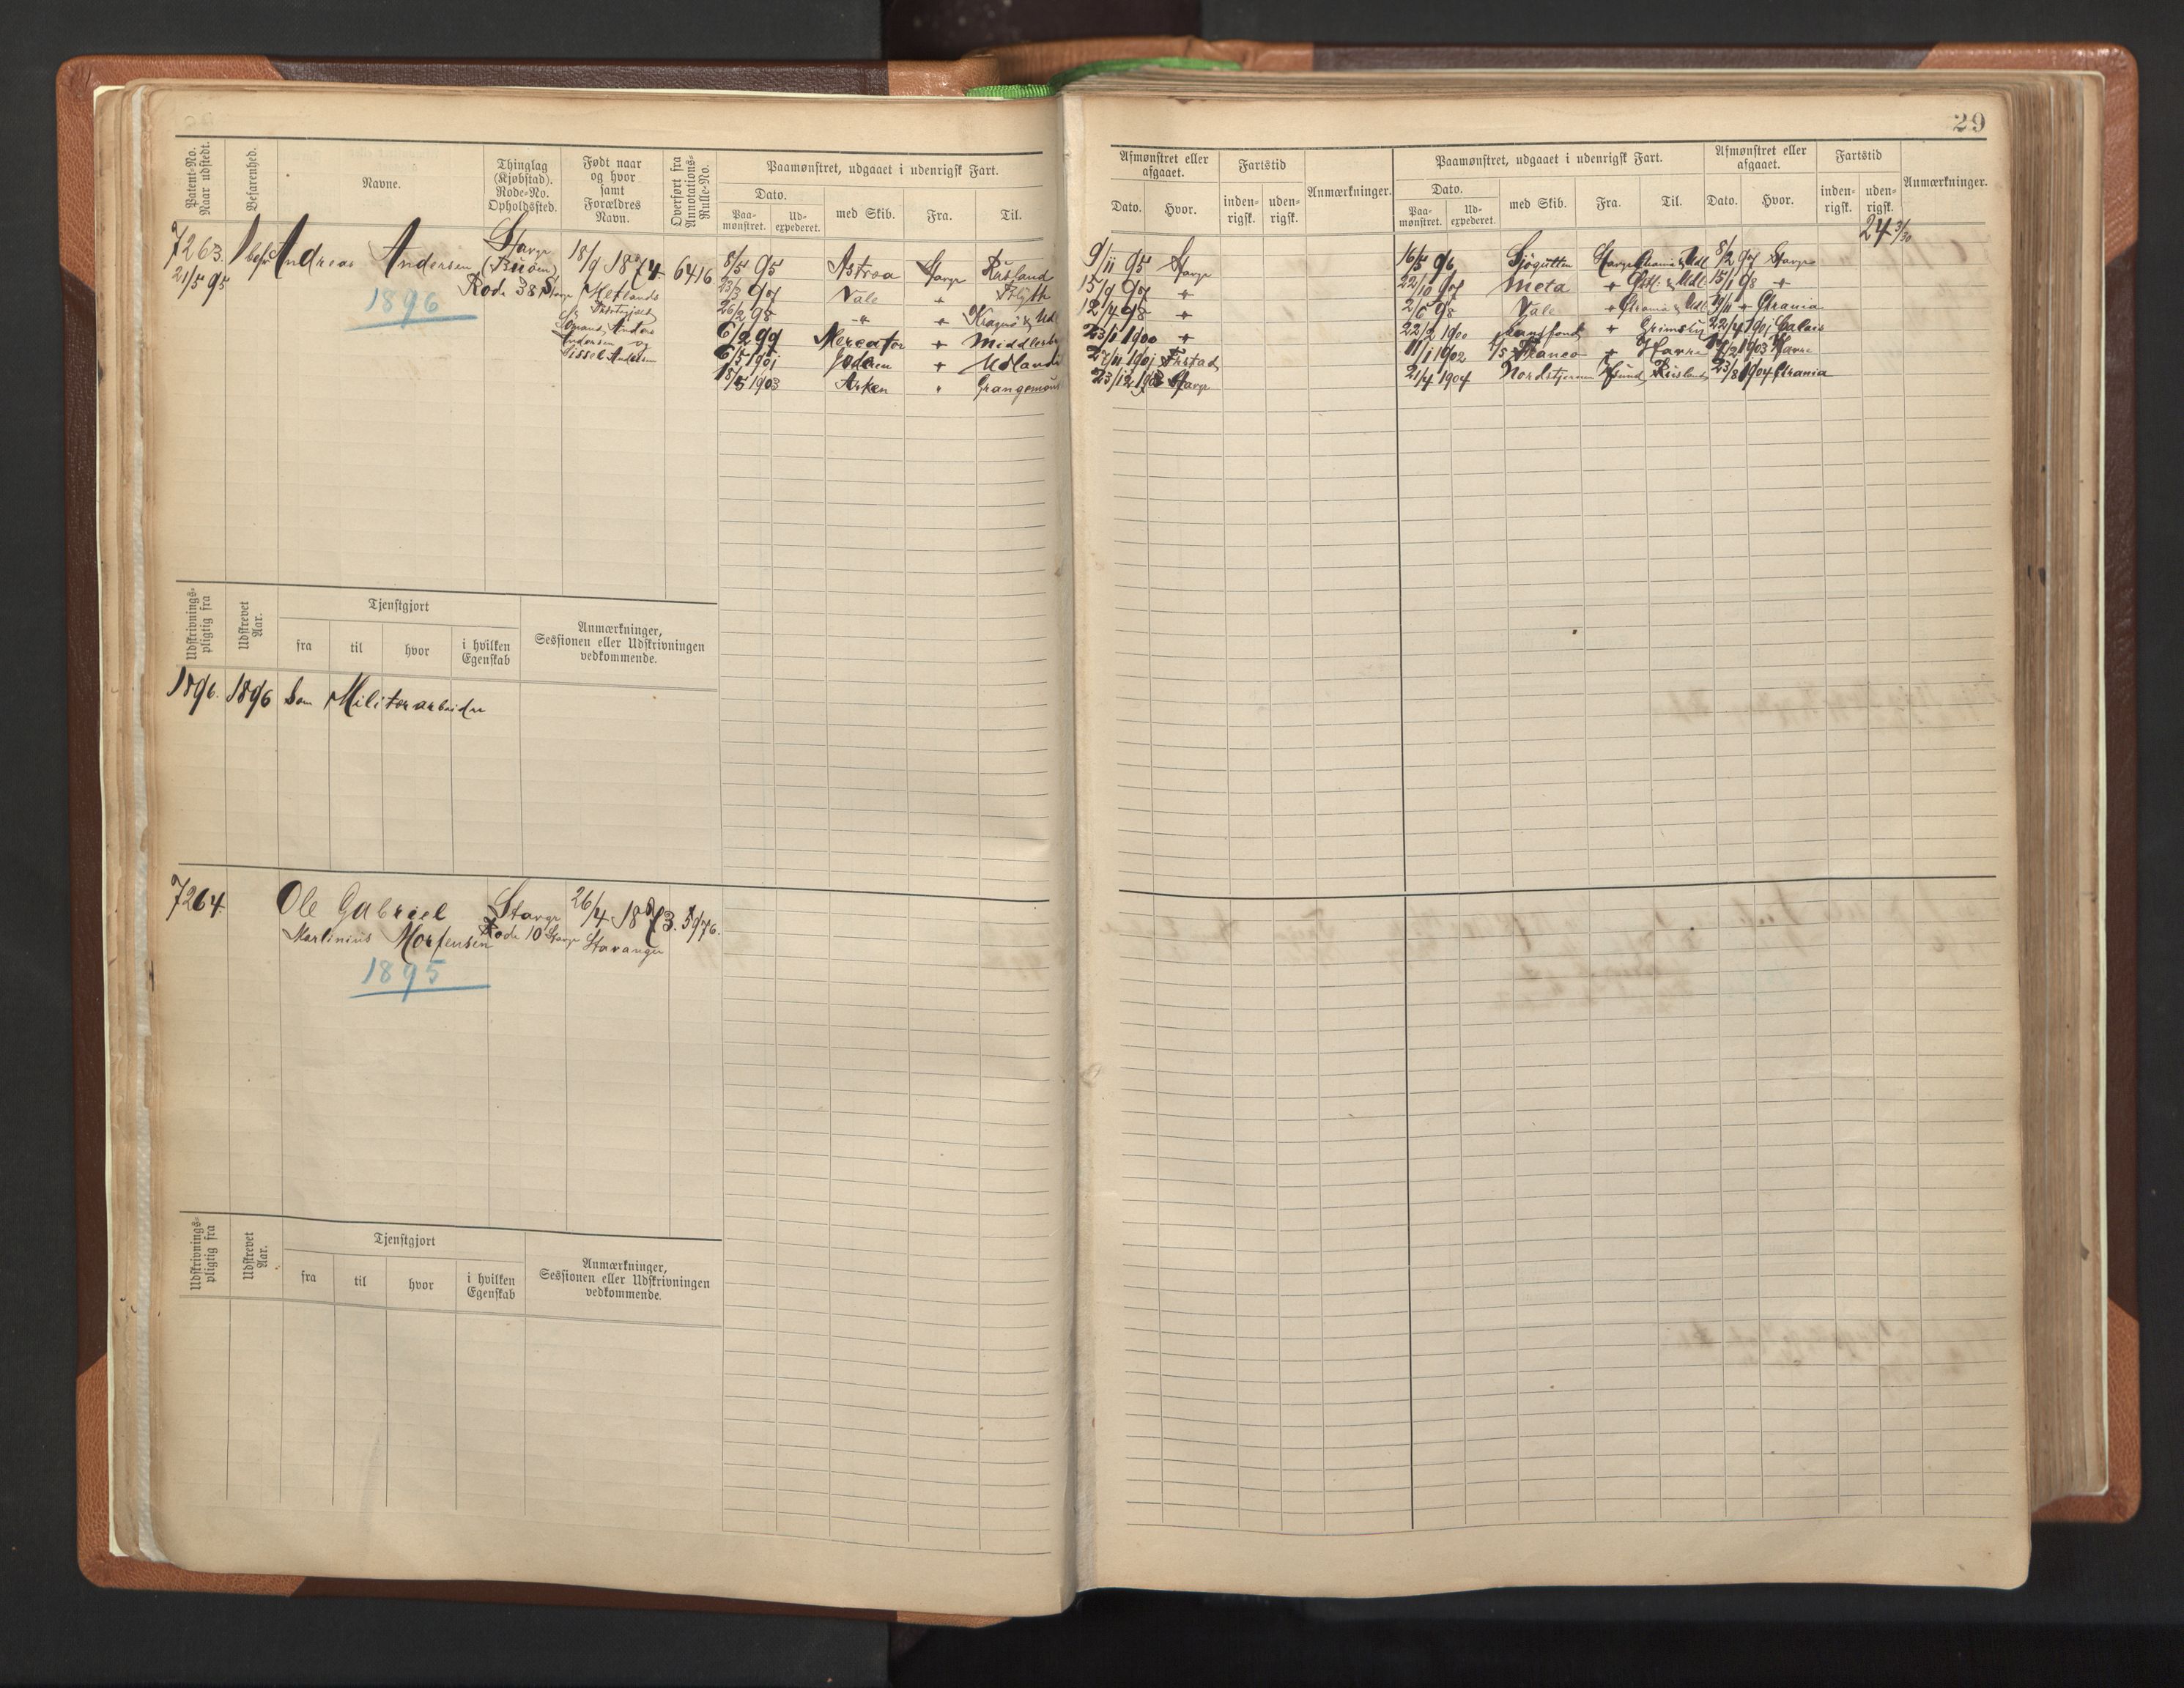 29
Patent-No. Naar udstedt.
Befarenhed.
Navne.
Thinglag (Kjøbstad). Rode-No. Opholdssted.
Født naar og hvor samt Forældres Navn.
Overført fra Annotations-Rulle-No.
Paamønstret, udgaaet i udenrigsk Fart.
Dato.
Paa-mønstret.
Ud-expederet.
med Skib.
Fra.
Til.
Afmønstret eller afgaaet.
Dato.
Hvor.
Fartstid
inden-rigsk.
uden-rigsk.
Anmærkninger.
Paamønstret, udgaaet i udenrigsk Fart.
Dato.
Paa-mønstret.
Ud-expederet.
med Skib.
Fra.
Til.
Afmønstret eller afgaaet.
Dato.
Hvor.
Fartstid
inden-rigsk.
uden-rigsk.
Anmærkninger.
24 3/30
7263.
21/5 95
Andreas Andersen
1896
Stavgr
(Buøen)
Rode 381 Stavgr
18/9 1874.
Hetlands
Præstegjeld
Anders
Andersen og
Sissel Andersen
6416
8/5 95 Astræa Stavgr Rusland 9/11 95 Stavgr 16/5 96 Sjøgutten Stavgr Chrania & Udl 8/2 97 Stavgr
23/3 97 Vale " Blyth 15/9 97 " 22/10 97 Meta " & Udl. 15/1 98 "
26/2 98 " " Kragerø & Udl 12/4 98 " 2/6 98 Vale " Chrania & Udl " Chrania
6/2 99 Mercator " Middlesbro 23/1 1900 " 22/2 1900 " Grimsby 22/4 1901 Calais
6/5 1901 Jæderen " Udlandet 27/11 1901 Frstad 11/1 1902 S/S Franco " Havre 1903 Havre
18/5 1903 Arken " Grangemouth 23/12 1903 Stavgr 21/4 1904 Nordstjernen Rusland 23/8 1904 Chrania
Udskrivnings-pligtig fra
Udskrevet Aar.
Tjenstgjort
fra
til
hvor
i hvilken Egenskab
Anmærkninger, Sessionen eller Udskrivningen vedkommende.
1896. 1896 som Militærarbeider
7264.
Ole Gabriel
Martinius Mortensen
1895
Stavgr
Rode 10 Stavgr
26/4 1873.
Stavanger
5976.
Udskrivnings-pligtig fra
Udskrevet Aar.
Tjenstgjort
fra
til
hvor
i hvilken Egenskab
Anmærkninger, Sessionen eller Udskrivningen vedkommende.